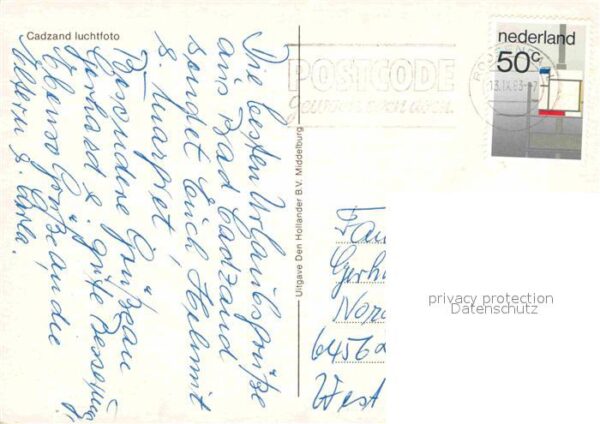 Cadzand luchtfoto
Die besten Urlaubsgrüße
aus Bad Cadzand
sendet Euch Helmut
&
Besondere Grüße an
Gerhard & gute Besserung
Ebenso Grüße an die
Eltern &
Uitgave Den Hollander B.V. Middelburg
nederland
50c
POSTCODE
Gewoon even doen.
13.IX.83
Fam
Gerh
Nord
6456
West
privacy protection
Datenschutz